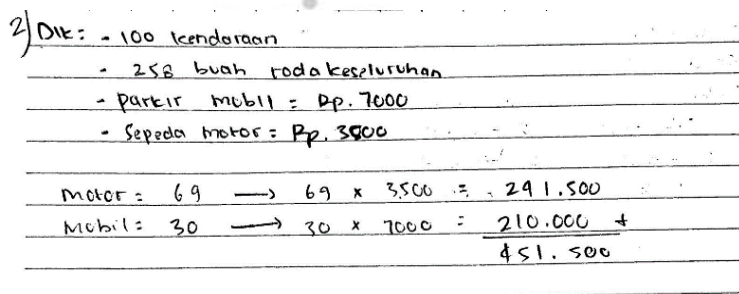 2) Dik: - 100 kendaraan
- 258 buah roda keseluruhan
- Parkir mobil = Rp. 7000
- Sepeda motor = Rp. 3500
Motor = 69 → 69 x 3.500 = 241.500
Mobil = 30 → 30 x 7000 = 210.000 +
451.500